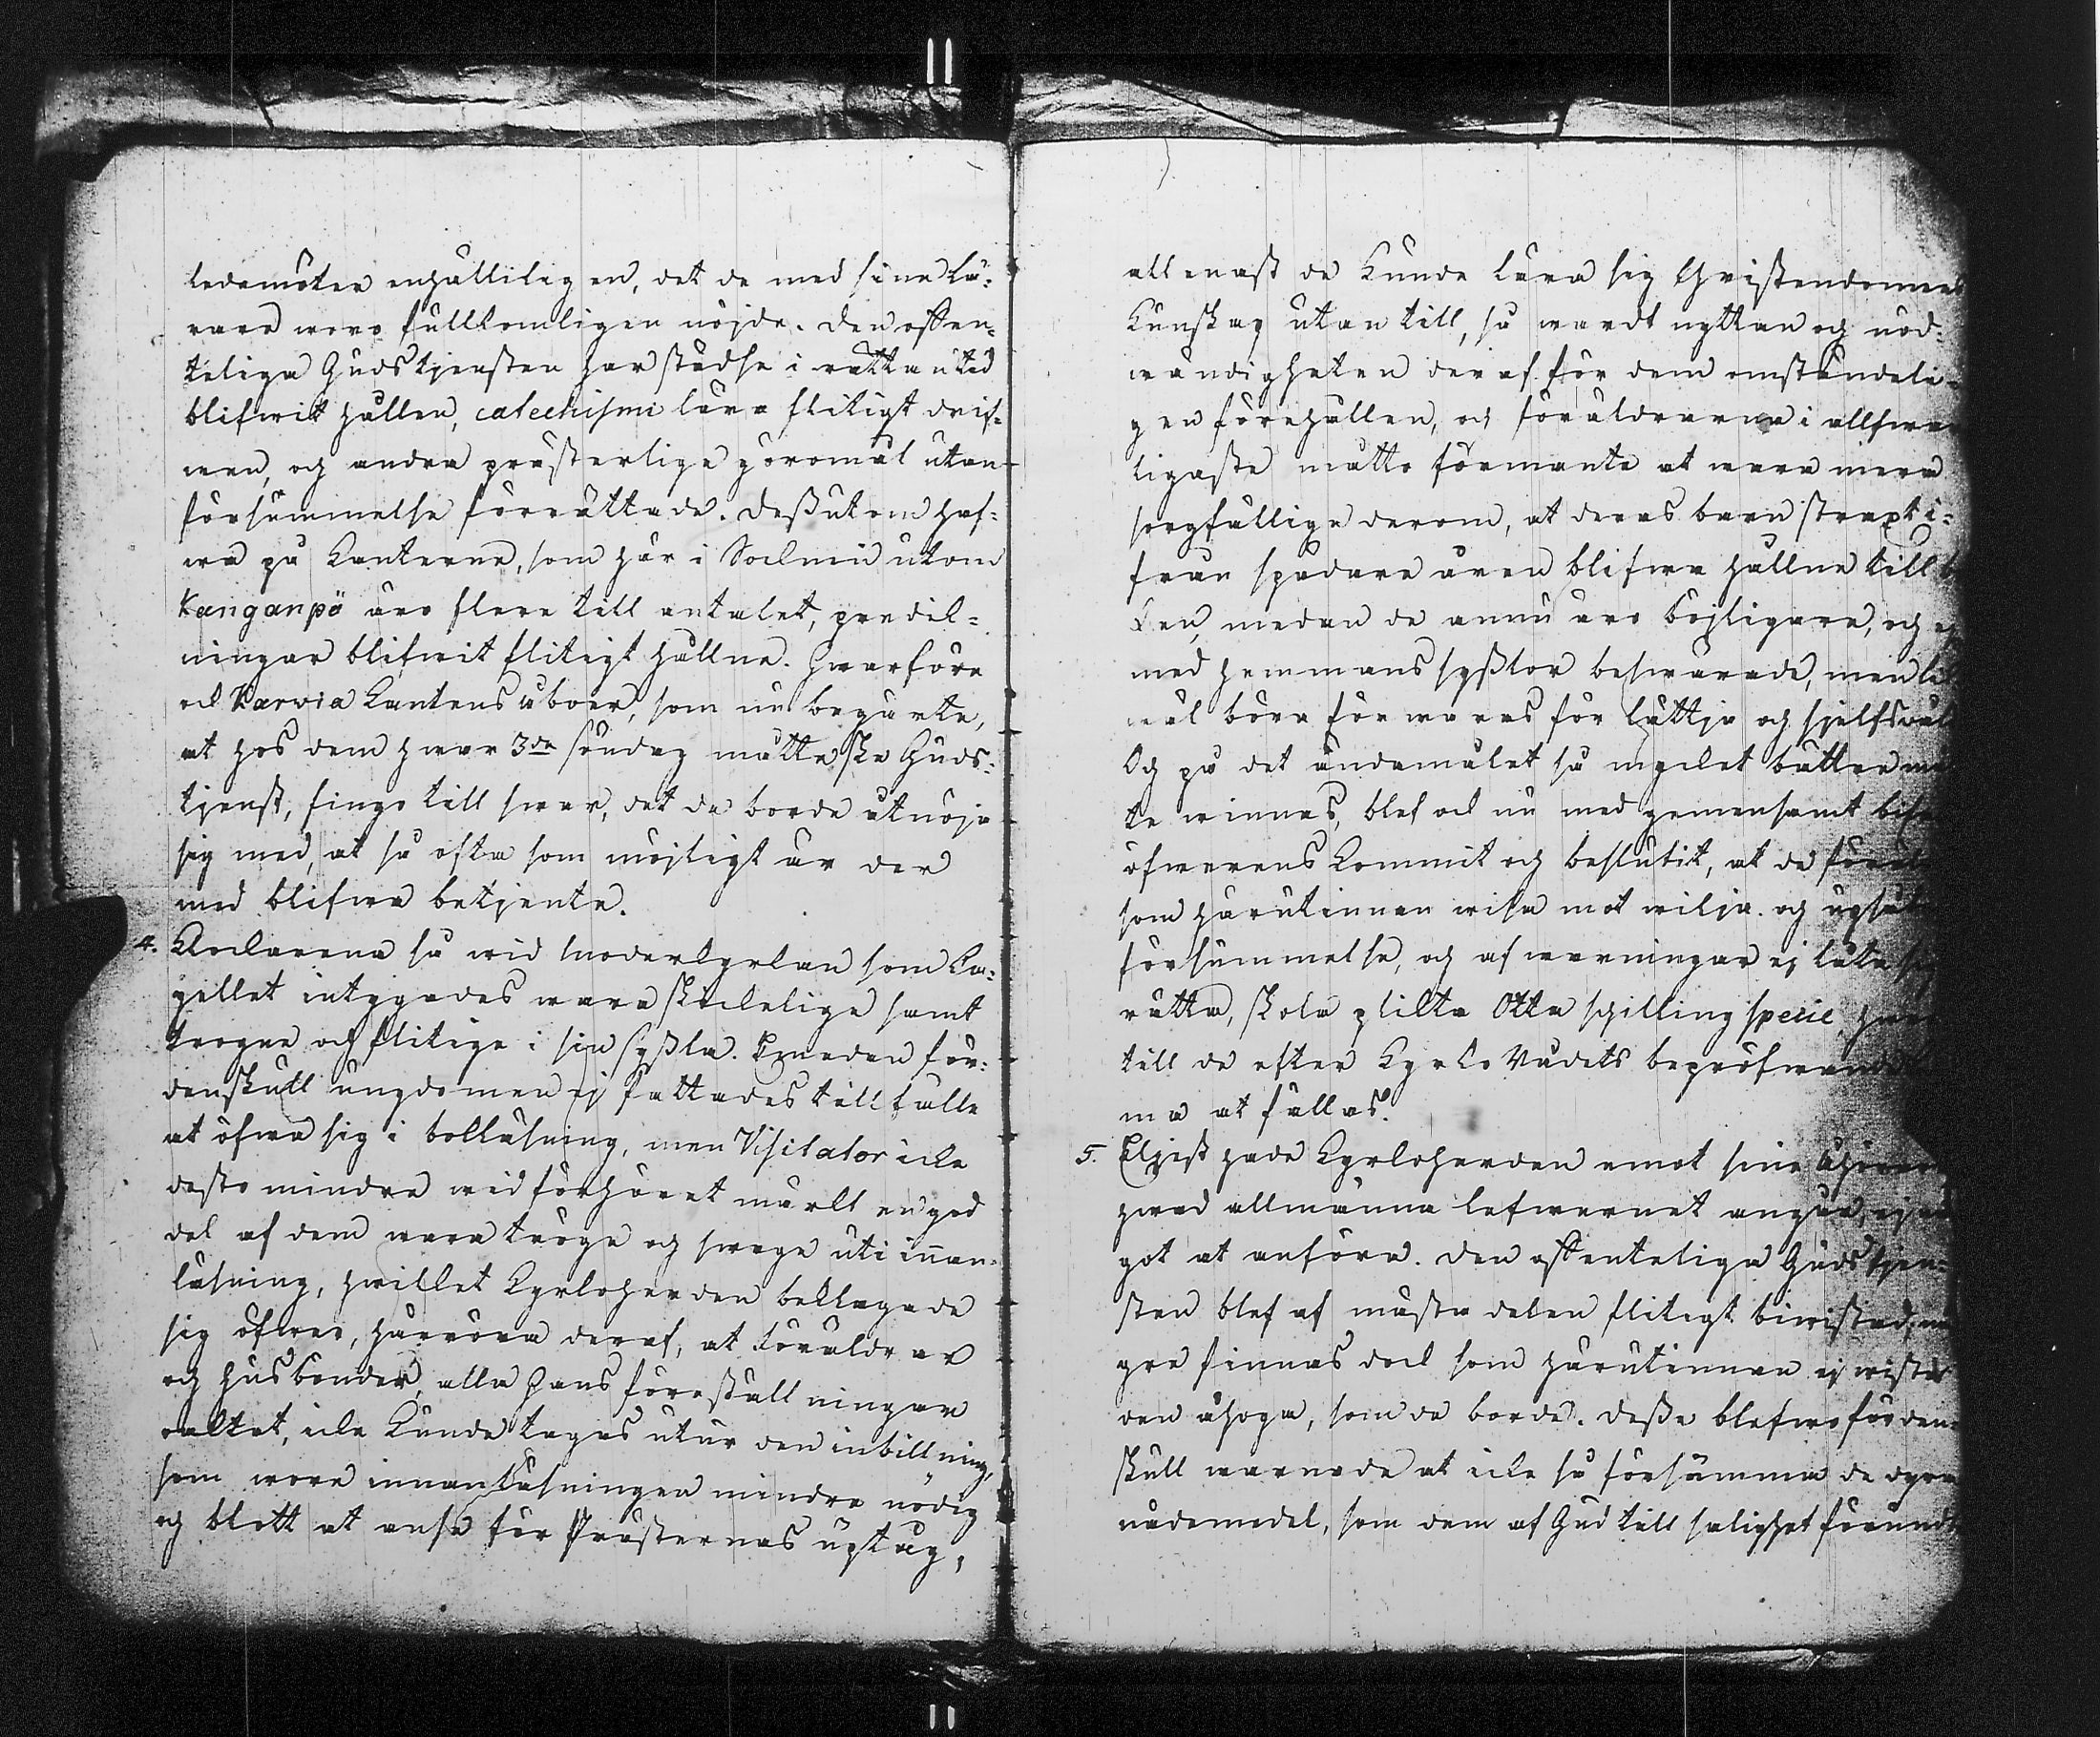 ledamöter enhälliligen, det de med sina Lä-
rare woro fullkomligen nöjde. Den offen-
teliga Gudstjensten har städse i rättan tid
blifwit hållen, catechismi lära flitigt drif-
wen, och andra prästerliga göromål utan
försummelse förrättade. Dessutom haf-
wa på Kanterne, som här i Socknen utom
Kanganpö äro flere till antalet, predik-
ningar blifwit flitigt hållne. Hwarföre
ock Karvia Kantens åboer, som nu begärte,
at hos dem hwar 3die söndag måtte ske Guds-
tjenst, fingo till swar, det de borde åtnöja
sig med, at så ofta som möjligt är der
med blifwa betjente.
4. Klockarena så wid Moderkyrkan som Ka-
pellet intygades wara skickelige samt
trogne och flitige i sin sysla. Ehuru för-
denskull ungdomen ej fattades tillfälle
at öfwa sig i bokläsning, men Visitator icke
desto mindre wid förhöret märkt en god
del af dem wara tröge och swage uti innan-
läsning, hwilket Kyrkoherden beklagade
sig öfwer, härröra deraf, at föräldrar
och husbönder, alla hans föreställningar
oaktat, icke kunde tagas utur den inbillning,
som wore innanläsningen mindre nödig
och blott at anse för Prästernas uptåg,
allenast de kunde lära sig Christendomens
Kunskap utan till, så wardt nyttan och nöd-
wändigheten deraf för dem omständeli-
gen förehållen, och föräldrarna i allfwar
ligaste måtto förmante at wara mera
sorgfällige derom, at deras barn straxt i-
från spädare åren blifwa hållne till bo
ken, medan de ännu äro böjligare, och ej
med hemmanssysslor beswärade, men lik
wäl böra förwaras för lättja och sjelfswåld
Och på det ändamålet så mycket bättre mot
te winnas, blef ock nu med gemensamt bifall
öfwerens kommit och beslutit, at de föräldrar
som härutinnan wisa mot wilja och upsåtlig
försummelse, och af warningar ej låta sig
rätta, skola plikta Otta skilling specie, hwar
till de efter Kyrko Rådets bepröfwande
ma at fällas.
5. Elljest hade Kyrkoherden emot sine Åhörare
hwad allmänna lefwernet angår, ej nå
got at anföra. Den offenteliga Gudstjen-
sten blef af mästa delen flitigt biwistad; nå
gre finnas dock som härutinnan ej wista
den åhoga, som de borde. Desse blefwo förden
skull warnade at icke så försumma de dyra
nådemedel, som dem af Gud till salighet förundt